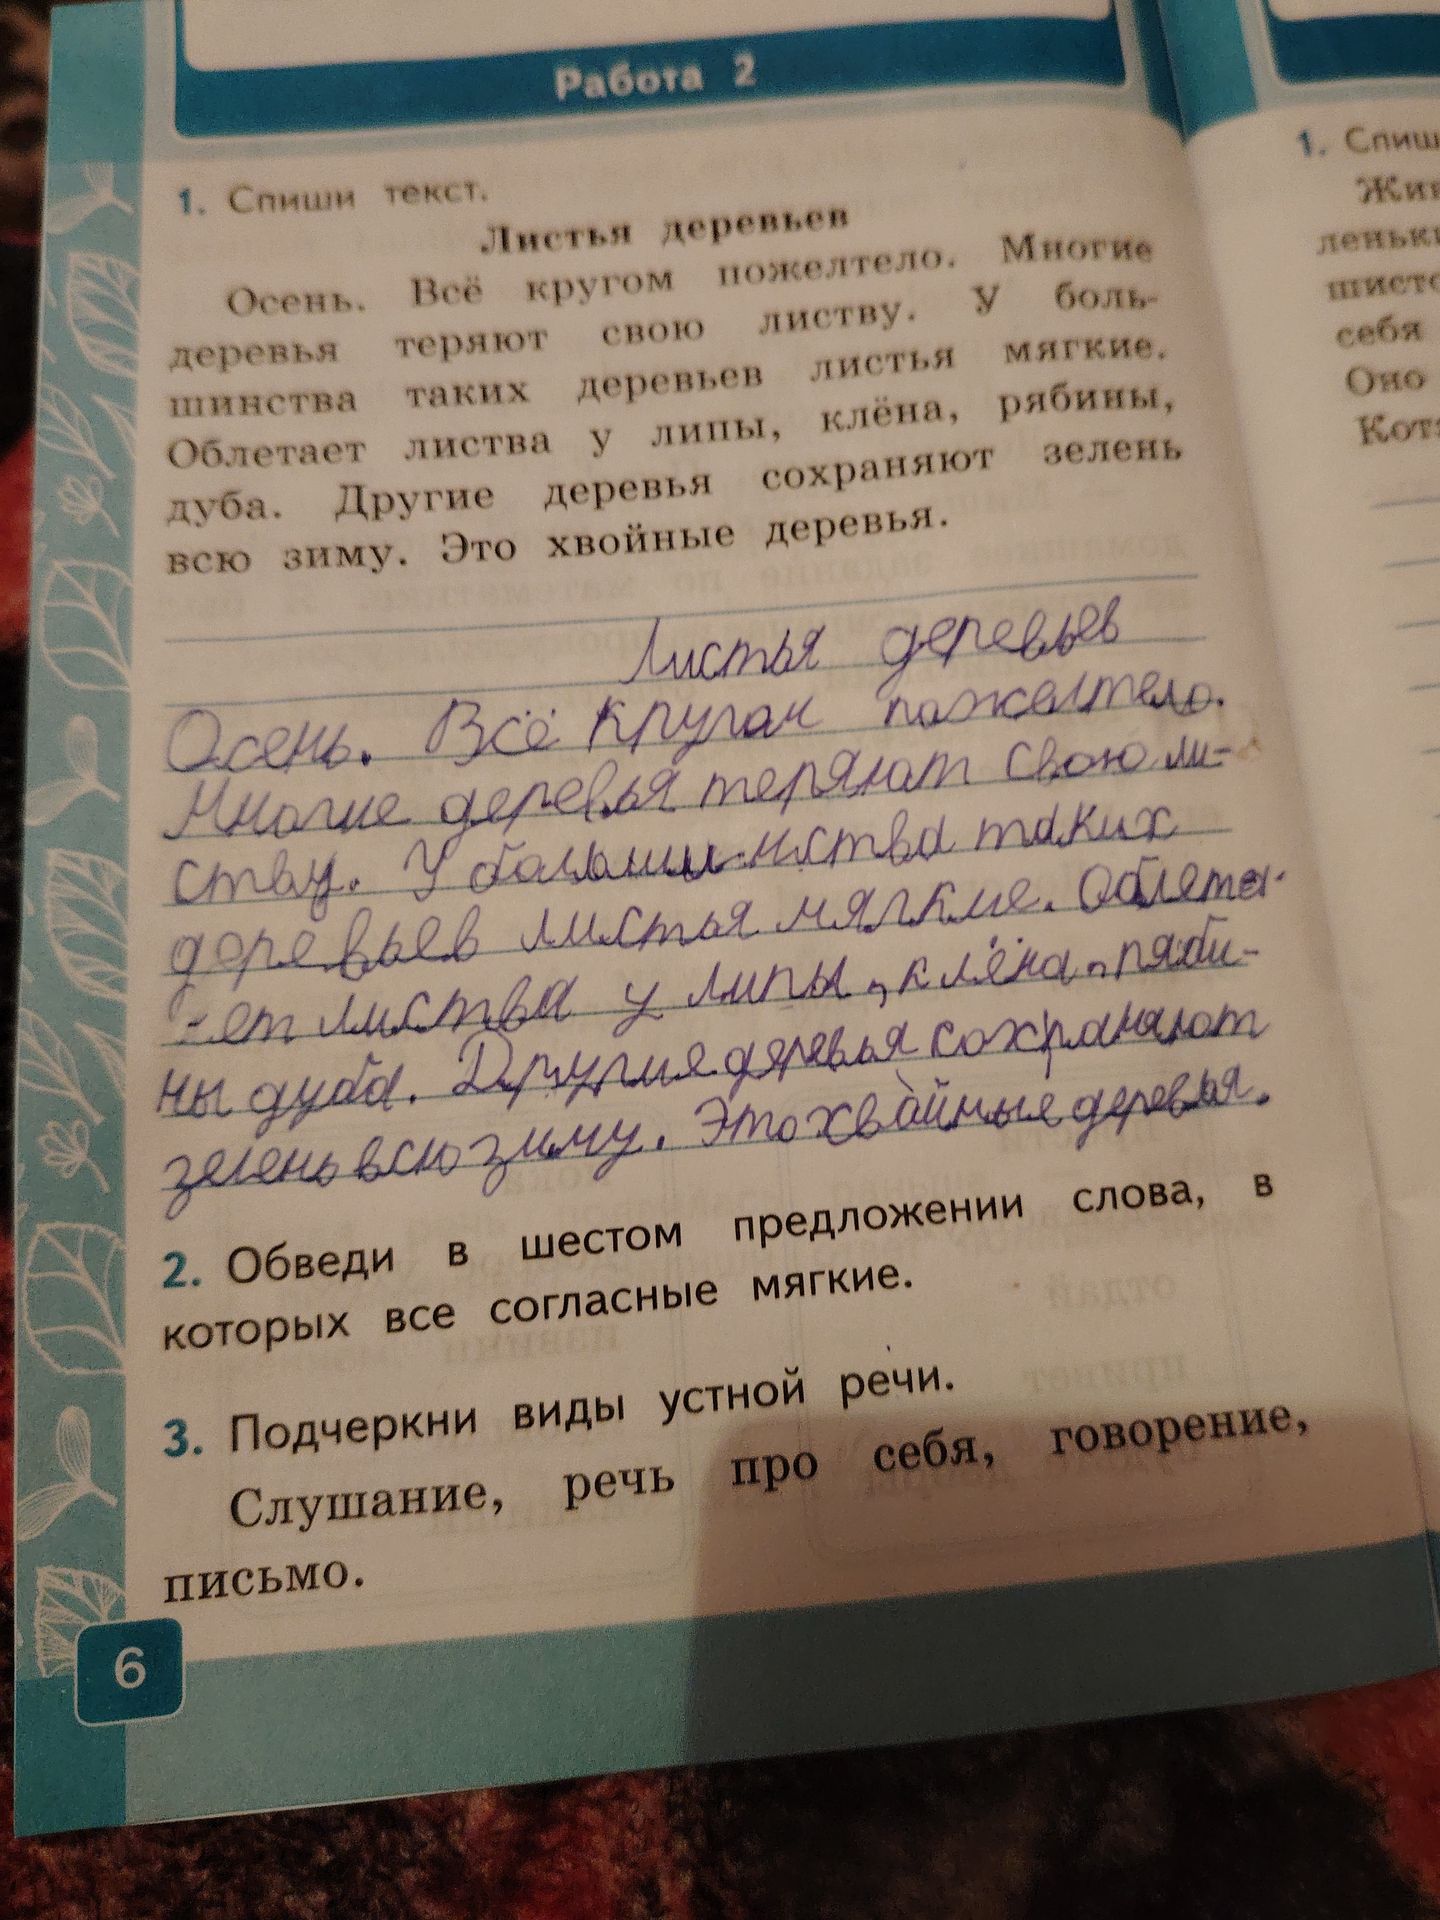 Работа 2
1. Спиши текст.
Листья деревьев
Осень. Всё кругом пожелтело. Многие
деревья теряют свою листву. У боль-
шинства таких деревьев листья мягкие.
Облетает листва у липы, клёна, рябины,
дуба. Другие деревья сохраняют зелень
всю зиму. Это хвойные деревья.
Листья деревьев
Осень. Всё кругом пожелтело.
Многие деревья теряют свою ли-
ству. У большинства таких
деревьев листья мягкие. Облета-
-ет листва у липы, клёна, ряби-
ны дуба. Другие деревья сохраняют
зелень всю зиму. Это хвойные деревья.
2. Обведи в шестом предложении слова, в
которых все согласные мягкие.
3. Подчеркни виды устной речи.
Слушание, речь про себя, говорение,
письмо.
6
1.
себя
Оно